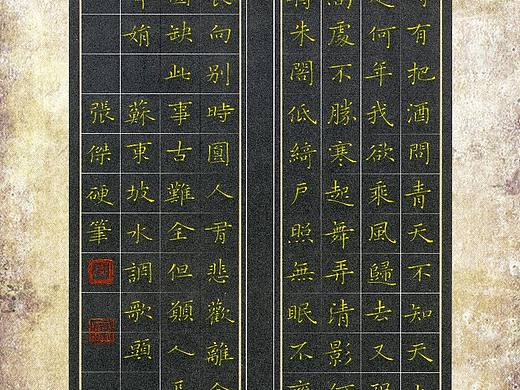 有把酒問青天不知天
何年我欲乘風歸去又
處不勝寒起舞弄清影
朱閣低綺戶照無眠不
向別時圓人有悲歡離
缺此事古難全但願人
娟
蘇東坡水調歌頭
張傑硬筆